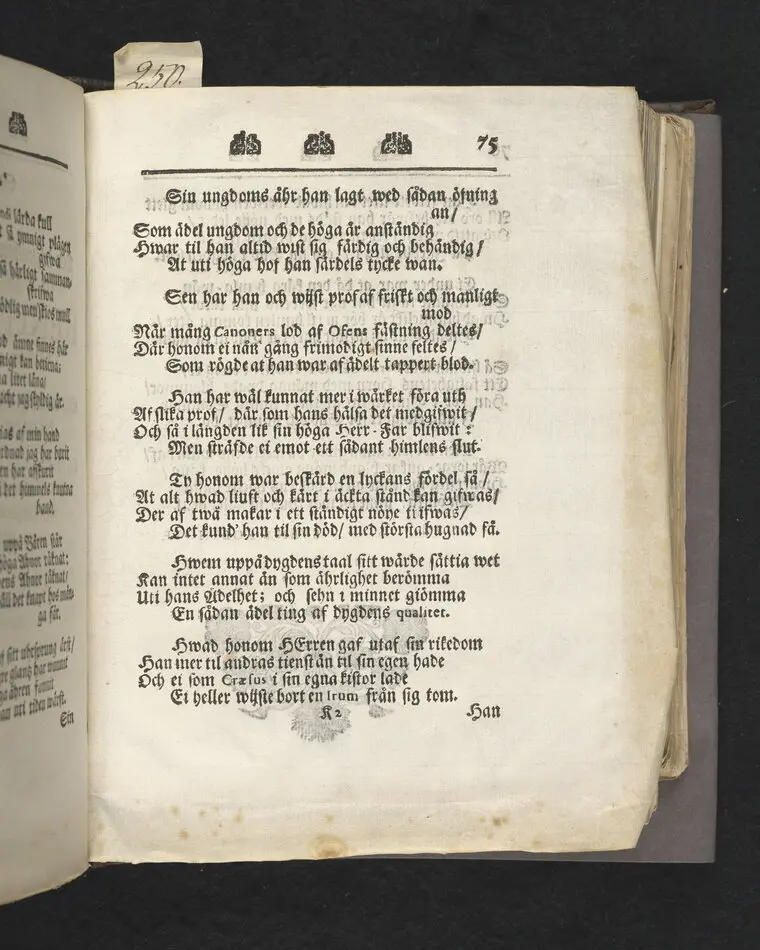 250.
75
Sin ungdoms åhr han lagt wed sådan öfning
an/
Som ädel ungdom och de höga är anständig
Hwar til han altid wist sig färdig och behändig/
At uti höga hof han särdels tycke wan.
Sen har han och wijst prof af friskt och manligt
mod
När mång Canoners lod af Ofens fästning deltes/
Där honom ei nån gång frimodigt sinne feltes/
Som rögde at han war af ädelt tappert blod.
Han har wäl kunnat mer i wärket föra uth
Af slika prof/ där som hans hälsa det medgifwit/
Och så i längden lik sin höga Herr-Far blifwit:
Men sträfde ei emot ett sådant himlens slut.
Ty honom war beskärd en lyckans fördel så/
At alt hwad liuft och kärt i äckta stånd kan gifwas/
Der af twå makar i ett ständigt nöye ti ifwas/
Det kund' han til sin död/ med största hugnad få.
Hwem uppå dygdens taal sitt wärde sättia wet
Kan intet annat än som ährlighet berömma
Uti hans Adelhet; och sehn i minnet giömma
En sådan ädel ting af dygdens qualitet.
Hwad honom HErren gaf utaf sin rikedom
Han mer til andras tienst än til sin egen hade
Och ei som Cræsus i sin egna kistor lade
Ei heller wijste bort en Irum från sig tom.
K 2
Han
lärda kull
ymnigt plägen
gifwa
så härligt samman-
skrifwa
ämne finnes här
af min hand
har afskurit
hand.
uppå Båren står
ga får.
Sin